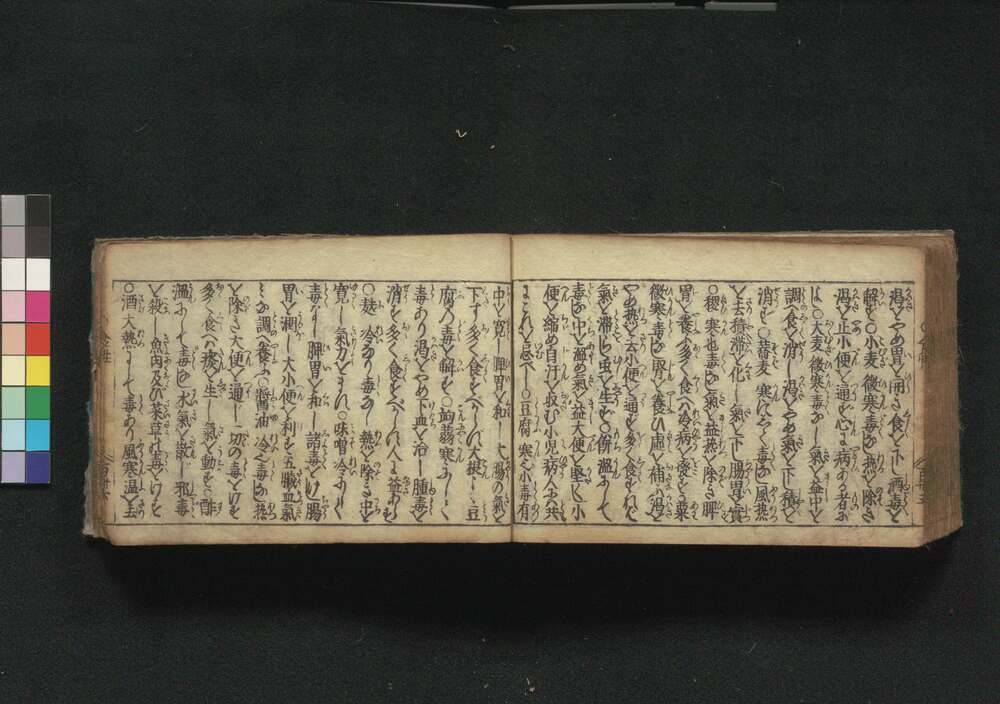 渇をやめ胃を開き食を下し酒毒を
解す○小麦 微寒毒なし熱を除き
渇を止小便を通じ心に病ある者に
よし○大麦 微寒毒なし気を益中を
調食を消し渇をやめ気を下し積を
消す○蕎麦 寒にして毒なし風熱
を去積滞を化し気を下し腸胃を実す
○稷 寒也毒なし気を益熱を除き脾
胃を養ふ多く食へば冷病を発す○粟
微寒毒なし腎を養ひ虚を補ひ渇を
やめ熱を去小便を通ず多く食すれば
気を滞らし虫を生ず○餅 温にして
毒なし中を温め気を益大便を堅くし小
便を縮め自汗を収む小児病人に共
にこれを忌べし○豆腐 寒なり小毒有
中を寛し脾胃を和し大腸の気を
下す多く食すべからず大根よく豆
腐の毒を解す○蒟蒻 寒にして
毒あり渇をやめ下血を治し腫毒を
消す多く食すべからず人に益あらず
○麸 冷なり毒なし熱を除き中を
寛し気力をます○味噌 冷にして
毒なし脾胃を和し諸毒を解し腸
胃を利し大小便を利す五臓血気
を調へ養ふ○醤油 冷にて毒なし熱
を除き大便を通じ一切の毒をけす
多く食へば痰を生じ気を動ず○酢
温にして毒なし水気を散じ邪毒
を殺し魚肉及び菜草の毒をけす
○酒 大熱にて毒あり風寒温を主